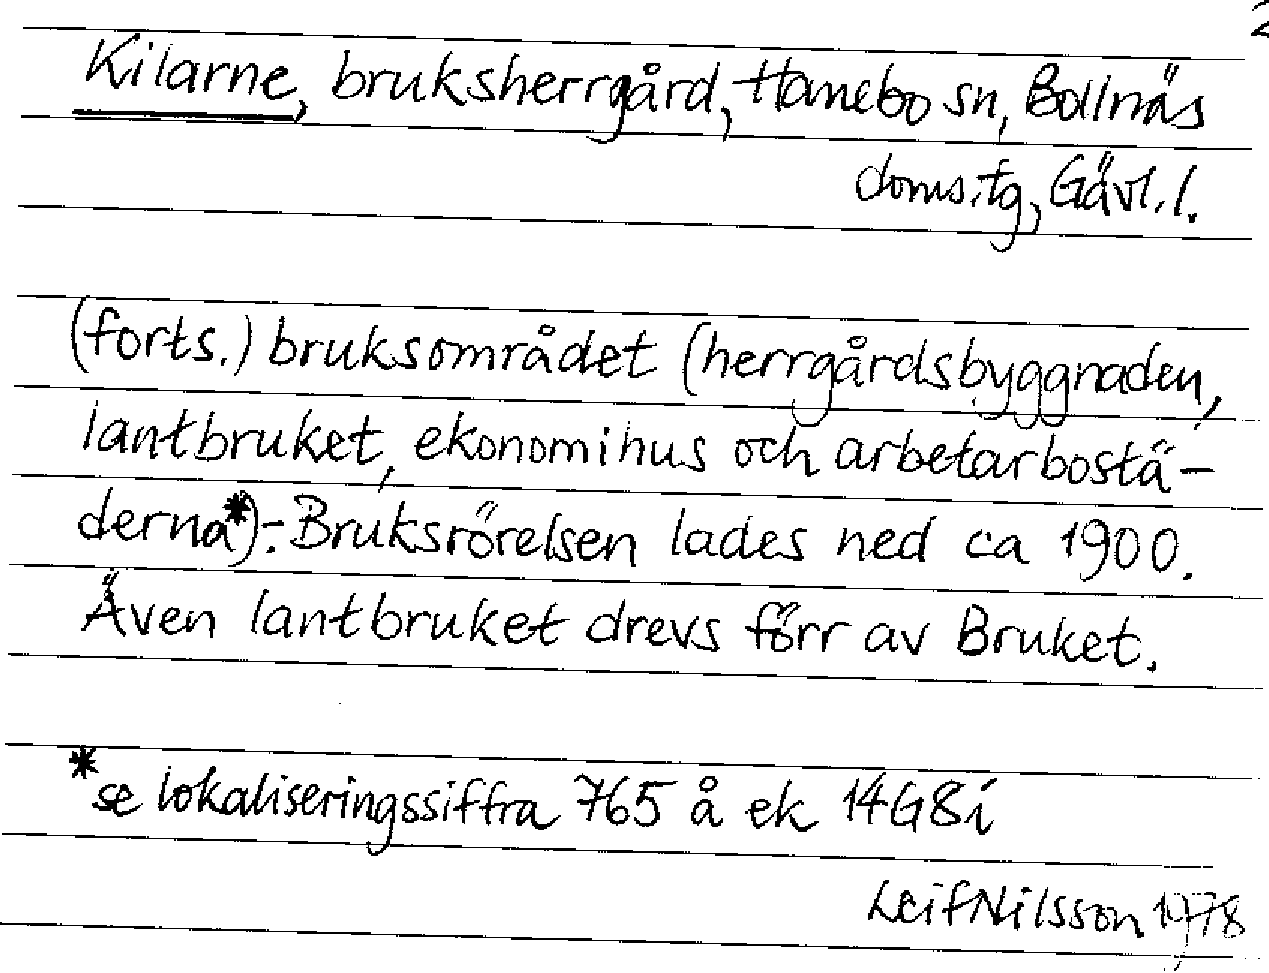 2
Kilarne, bruksherrgård, Hanebo sn, Bollnäs
doms.tg, Gävl.l.
(forts.) bruksområdet (herrgårdsbyggnaden,
lantbruket, ekonomihus och arbetarbostä-
derna*).- Bruksrörelsen lades ned ca 1900.
Även lantbruket drevs förr av Bruket.
*se lokaliseringssiffra 765 å ek 14G8i
Leif Nilsson 1978